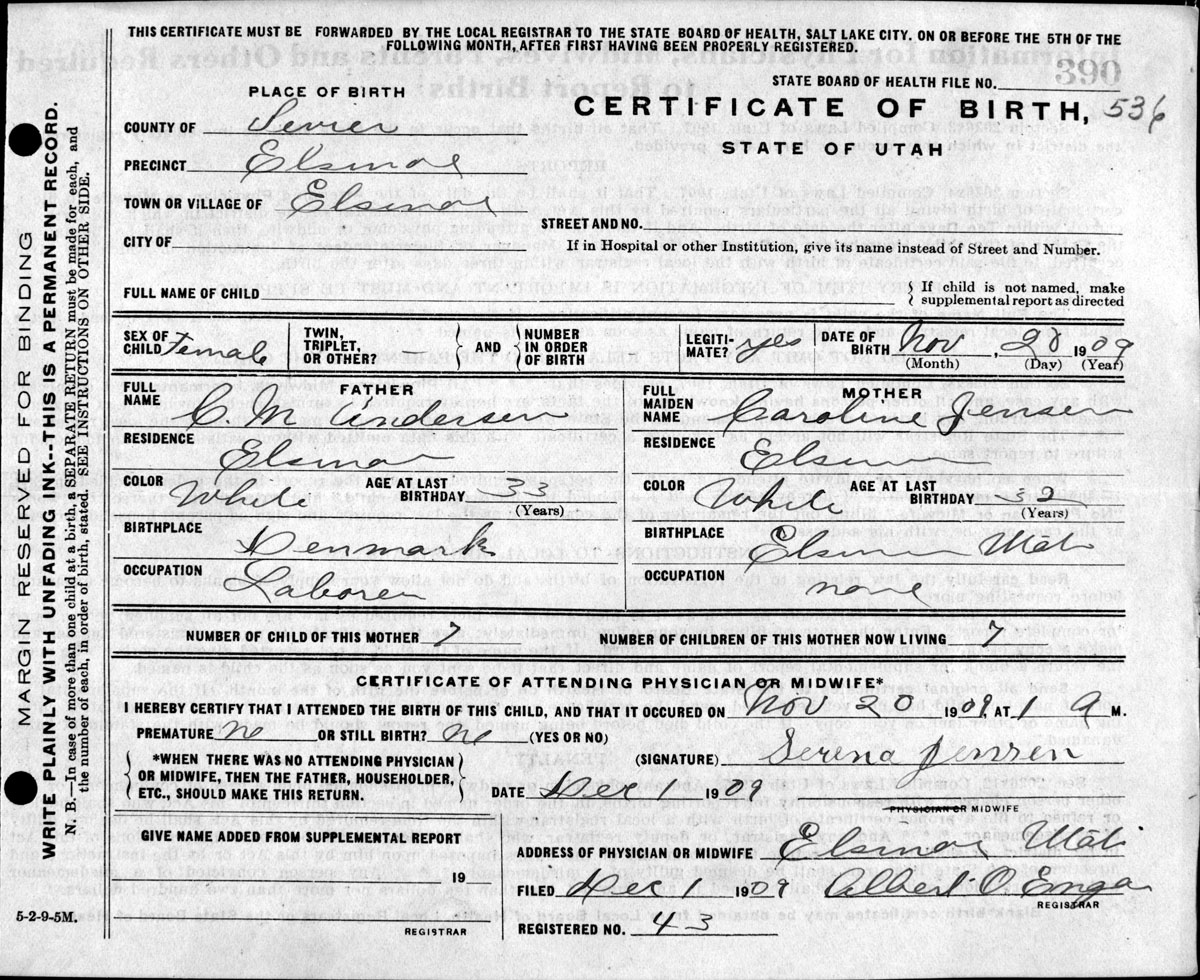 THIS CERTIFICATE MUST BE FORWARDED BY THE LOCAL REGISTRAR TO THE STATE BOARD OF HEALTH, SALT LAKE CITY. ON OR BEFORE THE 5TH OF THE
FOLLOWING MONTH, AFTER FIRST HAVING BEEN PROPERLY REGISTERED.
390
STATE BOARD OF HEALTH FILE NO.
PLACE OF BIRTH
CERTIFICATE OF BIRTH, 536
STATE OF UTAH
COUNTY OF Sevier
PRECINCT Elsinore
TOWN OR VILLAGE OF Elsinore
STREET AND NO.
CITY OF
If in Hospital or other Institution, give its name instead of Street and Number.
FULL NAME OF CHILD
If child is not named, make
supplemental report as directed
SEX OF CHILD Female
TWIN, TRIPLET, OR OTHER?
AND
NUMBER IN ORDER OF BIRTH
LEGITIMATE? yes
DATE OF BIRTH Nov, 20 1909
(Month) (Day) (Year)
FATHER
FULL NAME C. M. Andersen
MOTHER
FULL MAIDEN NAME Caroline Jensen
RESIDENCE Elsinore
RESIDENCE Elsinore
COLOR White AGE AT LAST BIRTHDAY 33
(Years)
COLOR White AGE AT LAST BIRTHDAY 32
(Years)
BIRTHPLACE Denmark
BIRTHPLACE Elsinore Utah
OCCUPATION Laborer
OCCUPATION none
NUMBER OF CHILD OF THIS MOTHER 7
NUMBER OF CHILDREN OF THIS MOTHER NOW LIVING 7
CERTIFICATE OF ATTENDING PHYSICIAN OR MIDWIFE*
I HEREBY CERTIFY THAT I ATTENDED THE BIRTH OF THIS CHILD, AND THAT IT OCCURED ON Nov 20 1909, AT 1 A M.
PREMATURE no OR STILL BIRTH? no (YES OR NO)
*WHEN THERE WAS NO ATTENDING PHYSICIAN
OR MIDWIFE, THEN THE FATHER, HOUSEHOLDER,
ETC., SHOULD MAKE THIS RETURN.
(SIGNATURE) Serena Jensen
DATE Dec 1 1909
PHYSICIAN OR MIDWIFE
GIVE NAME ADDED FROM SUPPLEMENTAL REPORT
ADDRESS OF PHYSICIAN OR MIDWIFE Elsinore Utah
19
FILED Dec 1 1909 Albert O.
REGISTRAR
REGISTRAR
REGISTERED NO. 43
5-2-9-5M.
MARGIN RESERVED FOR BINDING
WRITE PLAINLY WITH UNFADING INK--THIS IS A PERMANENT RECORD.
N. B.—In case of more than one child at a birth, a SEPARATE RETURN must be made for each, and
the number of each, in order of birth, stated. SEE INSTRUCTIONS ON OTHER SIDE.